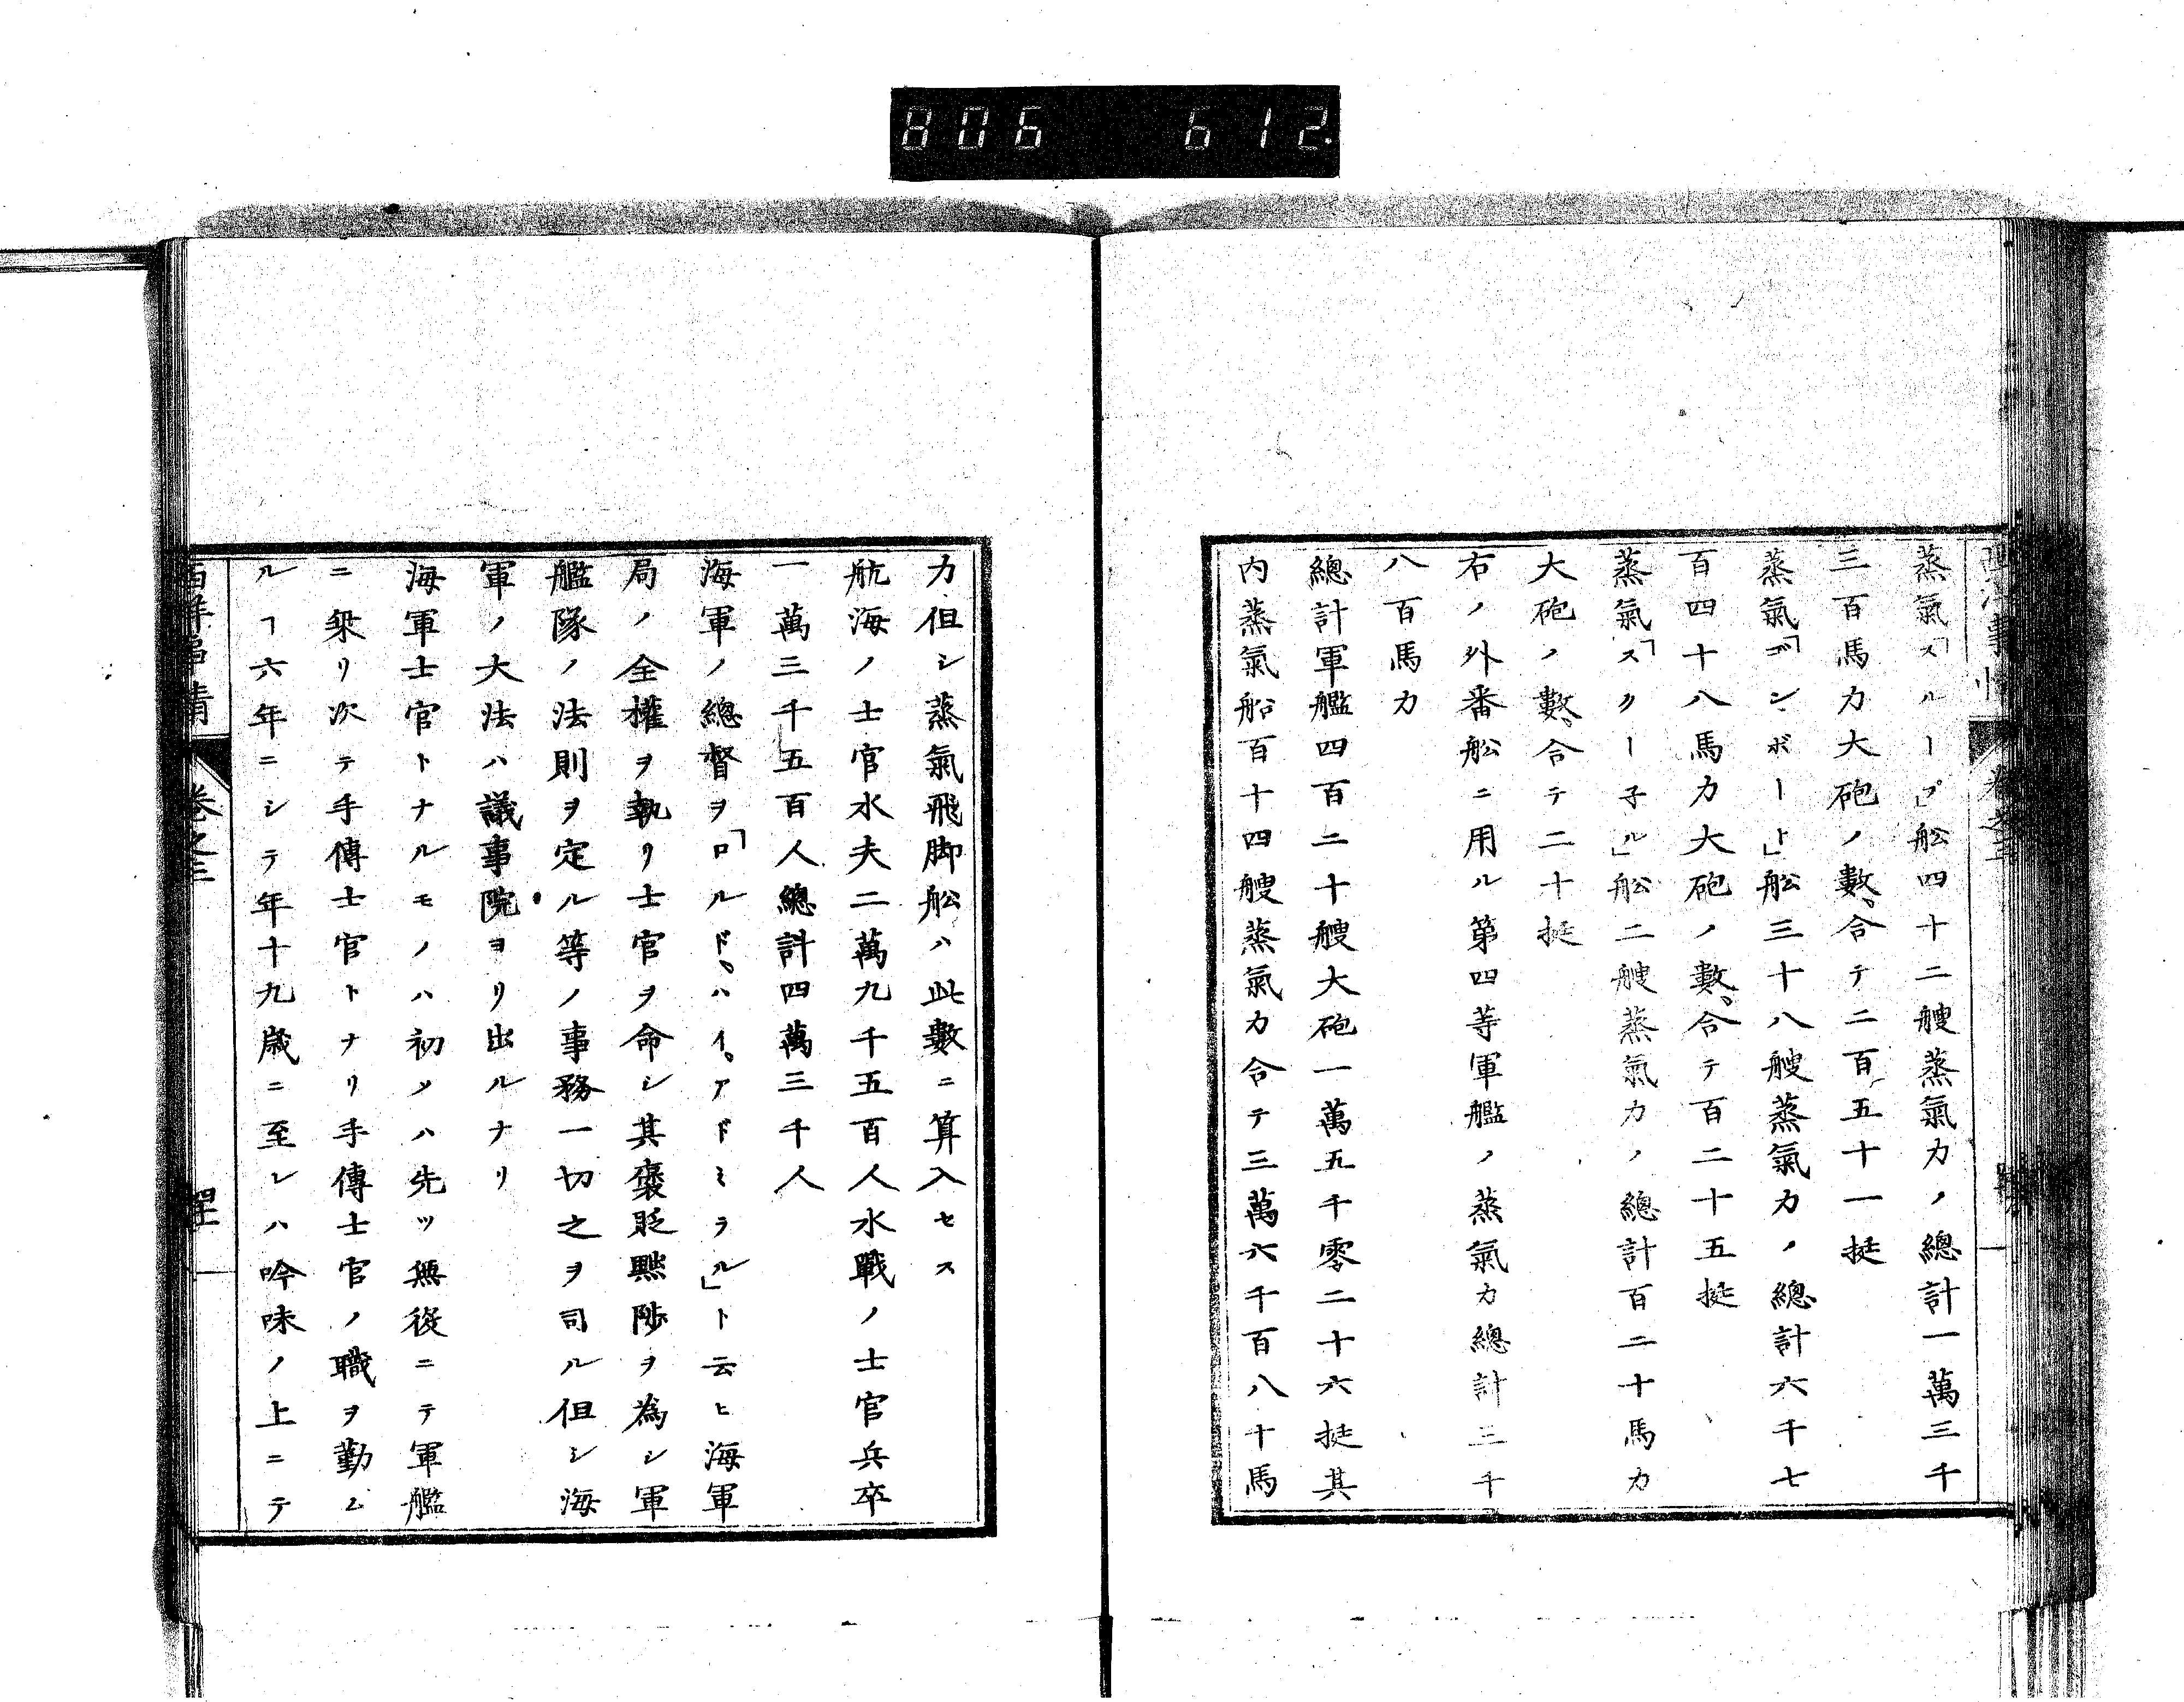 806 612
蒸氣「スループ」舩四十二艘蒸氣力ノ總計一萬三千
三百馬力大砲ノ數合テ二百五十一挺
蒸氣「ゴンボート」舩三十八艘蒸氣力ノ總計六千七
百四十八馬力大砲ノ數合テ百二十五挺
蒸氣「スクー子ル」舩二艘蒸氣力ノ總計百二十馬力
大砲ノ數合テ二十挺
右ノ外番舩ニ用ル第四等軍艦ノ蒸氣力總計三千
八百馬力
總計軍艦四百二十艘大砲一萬五千零二十六挺其
内蒸氣船百十四艘蒸氣力合テ三萬六千百八十馬
力但シ蒸氣飛脚舩ハ此數ニ算入セス
航海ノ士官水夫二萬九千五百人水戰ノ士官兵卒
一萬三千五百人總計四萬三千人
海軍ノ總督ヲ「ロルド。ハイ。アドミラル」ト云ヒ海軍
局ノ全權ヲ執リ士官ヲ命シ其襃貶黜陟ヲ為シ軍
艦隊ノ法則ヲ定ル等ノ事務一切之ヲ司ル但シ海
軍ノ大法ハ議事院ヨリ出ルナリ
海軍士官トナルモノハ初メハ先ツ無役ニテ軍艦
ニ乘リ次テ手傳士官トナリ手傳士官ノ職ヲ勤ム
ルヿ六年ニシテ年十九歳ニ至レハ吟味ノ上ニテ
西洋事情 卷之三